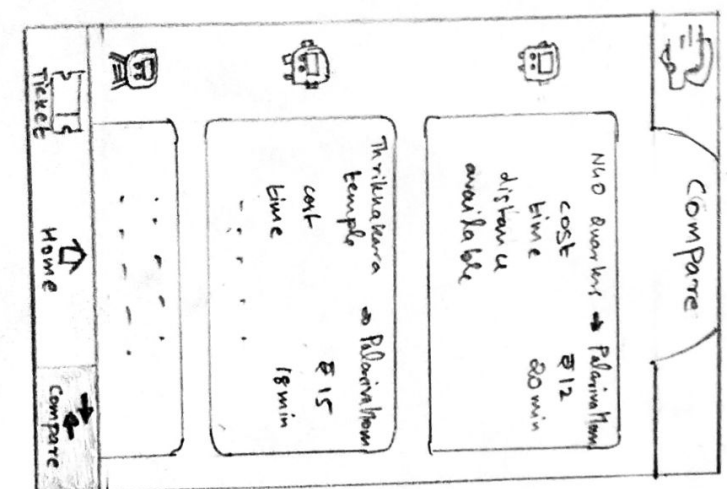 Compare
NGO Quarters → Palarivattom
cost ₹12
time 20 min
distance
available
Thrikkakara
temple → Palarivattom
cost ₹15
time 18 min
Ticket
Home
Compare